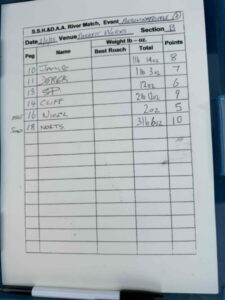 S.S.H.&D.A.A. River Match, Event
Date Venue Section B
Weight lb – oz.
Peg Name Best Roach Total Points
10 JAMIE 1lb 14oz 8
11 1lb 3oz 7
13 SP 12oz 6
14 CLIFF 2lb 9
16 NIGEL 2oz 5
18 NORTS 3lb 6oz 10